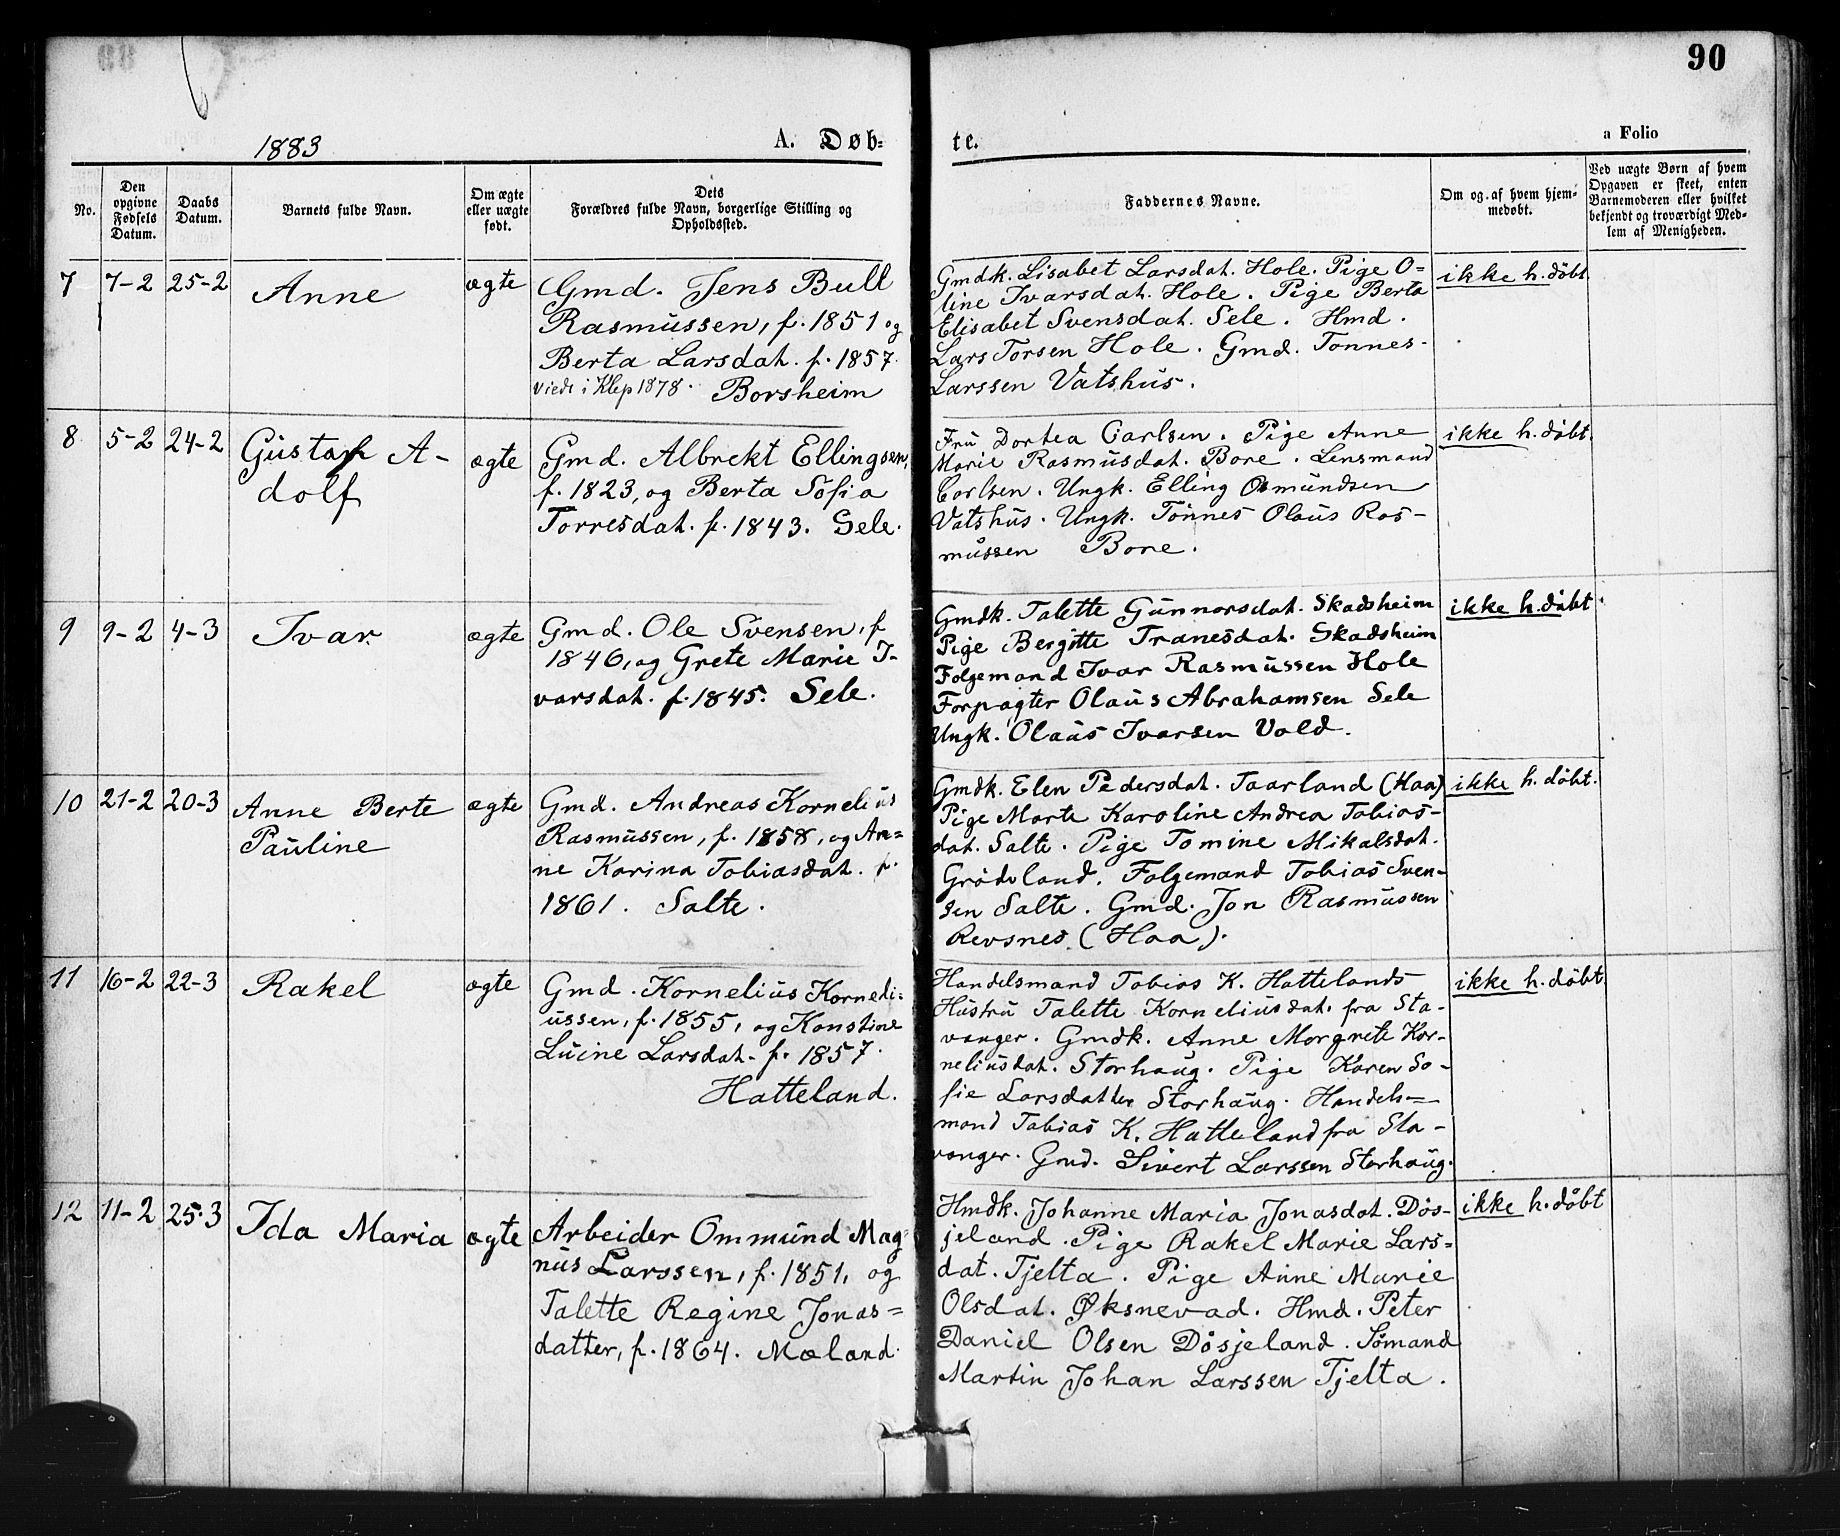 90
1883
A. Døb=
te.
a Folio
No.
Den
opgivne
Fødsels
Datum.
Daabs
Datum.
Barnets fulde Navn.
Om ægte
eller uægte
født.
Dets
Forældres fulde Navn, borgerlige Stilling og
Opholdssted.
Faddernes Navne.
Om og af hvem hjem-
medøbt.
Ved uægte Børn af hvem
Opgaven er skeet, enten
Barnemoderen eller hvilket
bekjendt og troværdigt Med-
lem af Menigheden.
7 7-2 25-2 Anne ægte
Gmd. Jens Bull
Rasmussen, f. 1851 og
Berta Larsdat. f. 1857.
viede i Klep 1878. Borsheim
Gmdk. Lisabet Larsdat. Hole. Pige O=
line Ivarsdat. Hole. Pige Berta
Elisabet Svensdat. Sele. Hmd.
Lars Torsen Hole. Gmd. Tønnes
Larssen Vatshus.
ikke h. døbt
8 5-2 24-2 Gustaf A-
dolf
ægte
Gmd. Albrekt Ellingsen,
f. 1823, og Berta Sofia
Torresdat. f. 1843. Sele.
Fru Dortea Carlsen. Pige Anne
Marie Rasmusdat. Bore. Lensmand
Carlsen. Ungk. Elling Osmundsen
Vatshus. Ungk. Tønnes Olaus Ras-
mussen Bore.
ikke h. døbt.
9 9-2 4-3 Ivar ægte
Gmd. Ole Svensen, f
1846, og Grete Marie I-
varsdat. f. 1845. Sele.
Gmdk. Talette Gunnarsdat. Skadsheim
Pige Bergitte Tranesdat. Skadsheim
Folgemand Ivar Rasmussen Hole
Forpagter Olaus Abrahamsen Sele
Ungk. Olaus Ivarsen Vold.
ikke h. døbt
10 21-2 20-3 Anne Berte
Pauline
ægte
Gmd. Andreas Kornelius
Rasmussen, f. 1858, og An=
ne Karina Tobiasdat. f.
1861. Salte.
Gmdk. Elen Pedersdat. Taarland (Haa)
Pige Marte Karoline Andrea Tobias-
dat. Salte. Pige Tomine Mikalsdat.
Grødeland. Folgemand Tobias Sven-
sen Salte. Gmd. Jon Rasmussen
Revsnes (Haa).
ikke h. døbt.
11 16-2 22-3 Rakel ægte
Gmd. Kornelius Korneli=
ussen, f. 1855, og Konstine
Luine Larsdat. f. 1857.
Hatteland.
Handelsmand Tobias K. Hattelands
Hustru Talette Korneliusdat. fra Sta-
vanger. Gmdk. Anne Margrete Kor-
neliusdat. Storhaug. Pige Karen So-
fie Larsdatter Storhaug. Handels=
mand Tobias K. Hatteland fra Sta-
vanger. Gmd. Sivert Larssen Storhaug.
ikke h. døbt.
12 11-2 25-3 Ida Maria ægte
Arbeider Ommund Mag=
nus Larssen, f. 1851, og
Talette Regine Jonas=
datter, f. 1864. Mæland.
Hmdk. Johanne Maria Jonasdat. Døs-
jeland. Pige Rakel Marie Lars=
dat. Tjelta. Pige Anne Marie
Olsdat. Øksnevad. Hmd. Peter
Daniel Olsen Døsjeland. Sømand
Martin Johan Larssen Tjelta.
ikke h. døbt